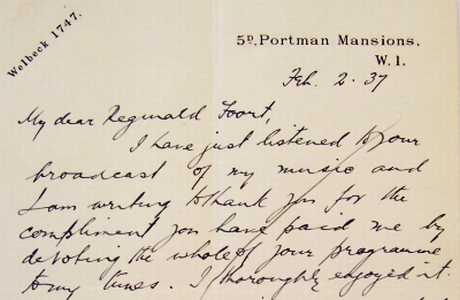 Welbeck 1747.
5D, Portman Mansions,
W. 1.
Feb. 2. 37
My dear Reginald Foort,
I have just listened to your
broadcast of my music and
I am writing to thank you for the
compliment you have paid me by
devoting the whole of your programme
to my tunes. I thoroughly enjoyed it.